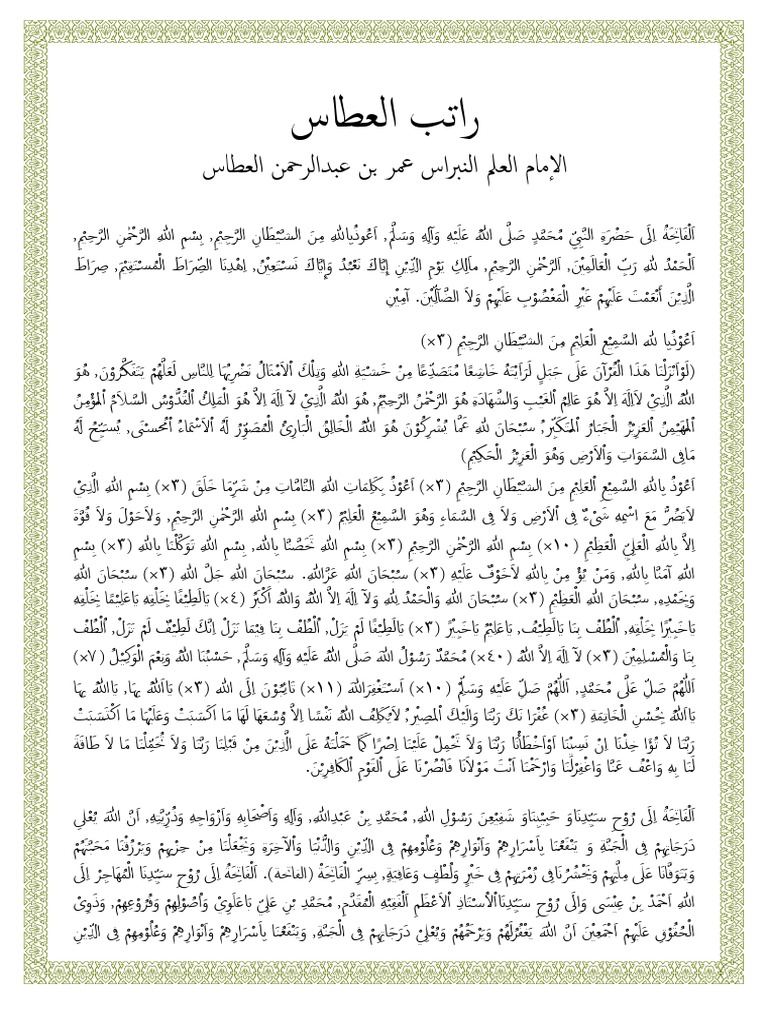 راتب العطاس
الإمام العلم النبراس عمر بن عبدالرحمن العطاس
اَلْفَاتِحَةُ اِلَى حَضْرَةِ النَّبِيِّ مُحَمَّدٍ صَلَّى اللهُ عَلَيْهِ وَآلِهِ وَسَلَّمَ, اَعُوْذُبِاللهِ مِنَ الشَّيْطَانِ الرَّجِيْمِ, بِسْمِ اللهِ الرَّحْمٰنِ الرَّحِيْمِ,
اَلْحَمْدُ للهِ رَبِّ الْعَالَمِيْنَ, اَلرَّحْمٰنِ الرَّحِيْمِ, مالِكِ يَوْمِ الدِّيْنِ إِيَّاكَ نَعْبُدُ وَإِيَّاكَ نَسْتَعِيْنُ, اِهْدِنَا الصِّرَاطَ الْمُسْتَقِيْمَ, صِرَاطَ
الَّذِيْنَ أَنْعَمْتَ عَلَيْهِمْ غَيْرِ الْمَغْضُوْبِ عَلَيْهِمْ وَلاَ الضَّآلِّيْنَ. آمِيْنِ
اَعُوْذُبِا للهِ السَّمِيْعِ الْعَلِيْمِ مِنَ الشَّيْطَانِ الرَّجِيْمِ (٣×)
(لَوْاَنْزَلْنَا هَذَا الْقُرْآنَ عَلَى جَبَلٍ لَرَاَيْتَهُ خَاشِعًا مُتَصَدِّعًا مِنْ خَشْيَةِ اللهِ وَتِلْكَ اْلاَمْثَالُ نَضْرِبُهَا لِلنَّاسِ لَعَلَّهُمْ يَتَفَكَّرُوْنَ, هُوَ
اللهُ الَّذِيْ لاَاِلَهَ اِلاَّ هُوَ عَالِمُ الْغَيْبِ وَالشَّهَادَةِ هُوَ الرَّحْمٰنُ الرَّحِيْمُ, هُوَ اللهُ الَّذِيْ لآ اِلَهَ اِلاَّ هُوَ الْمَلِكُ الْقُدُّوْسُ السَّلاَمُ اْلمُؤْمِنُ
اْلمُهَيْمِنُ اْلعَزِيْزُ الْجَبَارُ اْلمُتَكَبِّرُ, سُبْحَانَ اللهِ عَمَّا يُشْرِكُوْنَ هُوَ اللهُ الْخَالِقُ الْبَارِئُ الْمُصَوِّرُ لَهُ اْلاَسْمَاءُ الْحُسْنَى, يُسَبِّحُ لَهُ
مَافِى السَّمَوَاتِ وَاْلاَرْضِ وَهُوَ الْعَزِيْزُ الْحَكِيْمِ)
اَعُوْذُ بِاللهِ السَّمِيْعِ اْلعَلِيْمِ مِنَ الشَّيْطَانِ الرَّجِيْمِ (٣×) اَعُوْذُ بِكَلِمَاتِ اللهِ التَّامَّاتِ مِنْ شَرِّمَا خَلَقَ (٣×) بِسْمِ اللهِ الَّذِيْ
لاَيَضُرُّ مَعَ اسْمِهِ شَىْءٌ فِى اْلاَرْضِ وَلاَ فِى السَّمَاءِ وَهُوَ السَّمِيْعُ الْعَلِيْمُ (٣×) بِسْمِ اللهِ الرَّحْمٰنِ الرَّحِيْمِ, وَلاَحَوْلَ وَلاَ قُوَّةَ
اِلاَّ بِاللهِ الْعَلِيِّ الْعَظِيْمِ (١٠×) بِسْمِ اللهِ الرَّحْمٰنِ الرَّحِيْمِ (٣×) بِسْمِ اللهِ تَحَصَّنَّا بِاللهِ, بِسْمِ اللهِ تَوَكَّلْنَا بِاللهِ (٣×) بِسْمِ
اللهِ آمَنَّا بِاللهِ, وَمَنْ يُؤْ مِنْ بِاللهِ لاَخَوْفٌ عَلَيْهِ (٣×) سُبْحَانَ اللهِ عَزَّاللهِ. سُبْحَانَ اللهِ جَلَّ اللهِ (٣×) سُبْحَانَ اللهِ
وَبِحَمْدِهِ, سُبْحَانَ اللهِ الْعَظِيْمِ (٣×) سُبْحَانَ اللهِ وَالْحَمْدُ لِلهِ وَلآ اِلَهَ اِلاَّ اللهُ وَاللهُ اَكْبَرُ (٤×) يَالَطِيْفًا بِخَلْقِهِ يَاعَلِيْمًا بِخَلْقِهِ
يَاخَبِيْرًا بِخَلْقِهِ, اُلْطُفْ بِنَا يَالَطِيْفُ, يَاعَلِيْمُ يَاخَبِيْرٌ (٣×) يَالَطِيْفًا لَمْ يَزَلْ, اُلْطُفْ بِنَا فِيْمَا نَزَلْ اِنَّكَ لَطِيْفٌ لَمْ تَزَلْ, اُلْطُفْ
بِنَا وَالْمُسْلِمِيْنَ (٣×) لآ اِلَهَ اِلاَّ اللهُ (٤٠×) مُحَمَّدٌ رَسُوْلُ اللهِ صَلَّى اللهُ عَلَيْهِ وَآلِهِ وَسَلَّمَ, حَسْبُنَا اللهُ وَنِعْمَ الْوَكِيْلُ (٧×)
اَللَّهُمَّ صَلِّ عَلَى مُحَمَّدٍ, اَللَّهُمَّ صَلِّ عَلَيْهِ وَسَلِّمْ (١٠×) اَسْتَغْفِرُاللهَ (١١×) تَائِبُوْنَ اِلَى اللهِ (٣×) يَااَللهُ بِهَا, يَااَللهُ بِهَا
يَااَللهُ بِحُسْنِ الْخَاتِمَةِ (٣×) غُفْرَا نَكَ رَبَّنَا وَاِلَيْكَ الْمَصِيْرُ, لاَيُكَلِّفُ اللهُ نَفْسًا اِلاَّ وُسْعَهَا لَهَا مَا كَسَبَتْ وَعَلَيْهَا مَا اكْتَسَبَتْ
رَبَّنَا لاَ تُؤَا خِذْنَا اِنْ نَسِيْنَا اَوْاَخْطَأْنَا رَبَّنَا وَلاَ تَحْمِلْ عَلَيْنَا اِصْرًا كَمَا حَمَلْتَهُ عَلَى الَّذِيْنَ مِنْ قَبْلِنَا رَبَّنَا وَلاَ تُحَمِّلْنَا مَا لاَ طَاقَةَ
لَنَا بِهِ وَاعْفُ عَنَّا وَاغْفِرْلَنَا وَارْحَمْنَا اَنْتَ مَوْلاَنَا فَانْصُرْنَا عَلَى الْقَوْمِ الْكَافِرِيْنَ.
اَلْفَاتِحَةُ اِلَى رُوْحِ سَيِّدِنَاوَ حَبِيْبِنَاوَ شَفِيْعِنَ رَسُوْلِ اللهِ, مُحَمَّدِ بِنْ عَبْدِاللهِ, وَآلِهِ وَاَصْحَابِهِ وَاَزْوَاجِهِ وَذُرِّيَّتِهِ, اَنَّ اللهَ يُعْلِي
دَرَجَاتِهِمْ فِى الْجَنَّةِ وَ يَنْفَعُنَا بِاَسْرَارِهِمْ وَاَنْوَارِهِمْ وَعُلُوْمِهِمْ فِى الدِّيْنِ وَالدُّنْيَا وَاْلآخِرَةِ وَيَجْعَلُنَا مِنْ حِزْبِهِمْ وَيَرْزُقُنَا مَحَبَّتَهُمْ
وَيَتَوَفَّانَا عَلَى مِلَّتِهِمْ وَيَحْشُرُنَافِى زُمْرَتِهِمْ فِى خَيْرٍ وَلُطْفٍ وَعَافِيَةٍ, بِسِرِّ الْفَاتِحَةْ (الفاتحة). اَلْفَاتِحَةُ اِلَى رُوْحِ سَيِّدِنَا الْمُهَاجِرْ اِلَى
اللهِ اَحْمَدْ بِنْ عِيْسَى وَاِلَى رُوْحِ سَيِّدِنَااْلاُسْتَاذِ اْلاَعْظَمِ اَلْفَقِيْهِ الْمُقَدَّمِ, مُحَمَّدِ بْنِ عَلِيّ بَاعَلَوِيْ وَاُصُوْلِهِمْ وَفُرُوْعِهِمْ, وَذَوِىْ
الْحُقُوْقِ عَلَيْهِمْ اَجْمَعِيْنَ اَنَّ اللهَ يَغْفِرُلَهُمْ وَيَرْحَمُهُمْ وَيُعْلِيْ دَرَجَاتِهِمْ فِى الْجَنَّةِ, وَيَنْفَعُنَا بِاَسْرَارِهِمْ وَاَنْوَارِهِمْ وَعُلُوْمِهِمْ فِى الدِّيْنِ